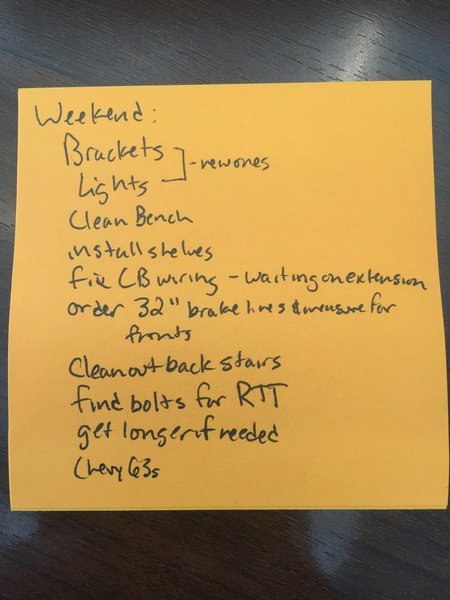 Weekend:
Brackets
Lights ] - new ones
Clean Bench
install shelves
fix CB wiring - waiting on extension
order 32" brake lines & measure for
fronts
Clean out back stairs
find bolts for RTT
get longer if needed
Chevy 63s